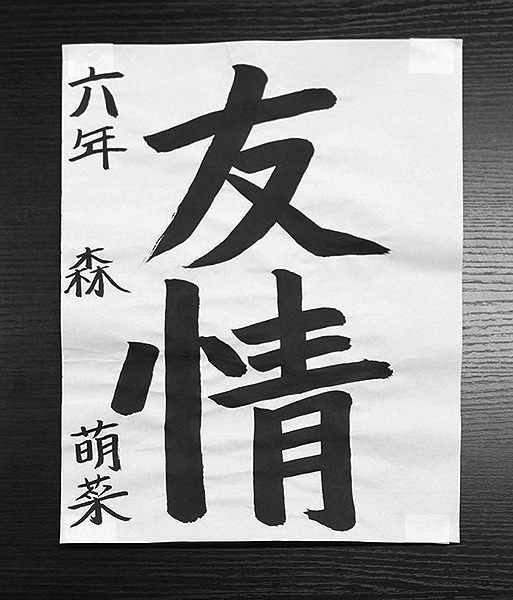 友情
六年 森 萌菜